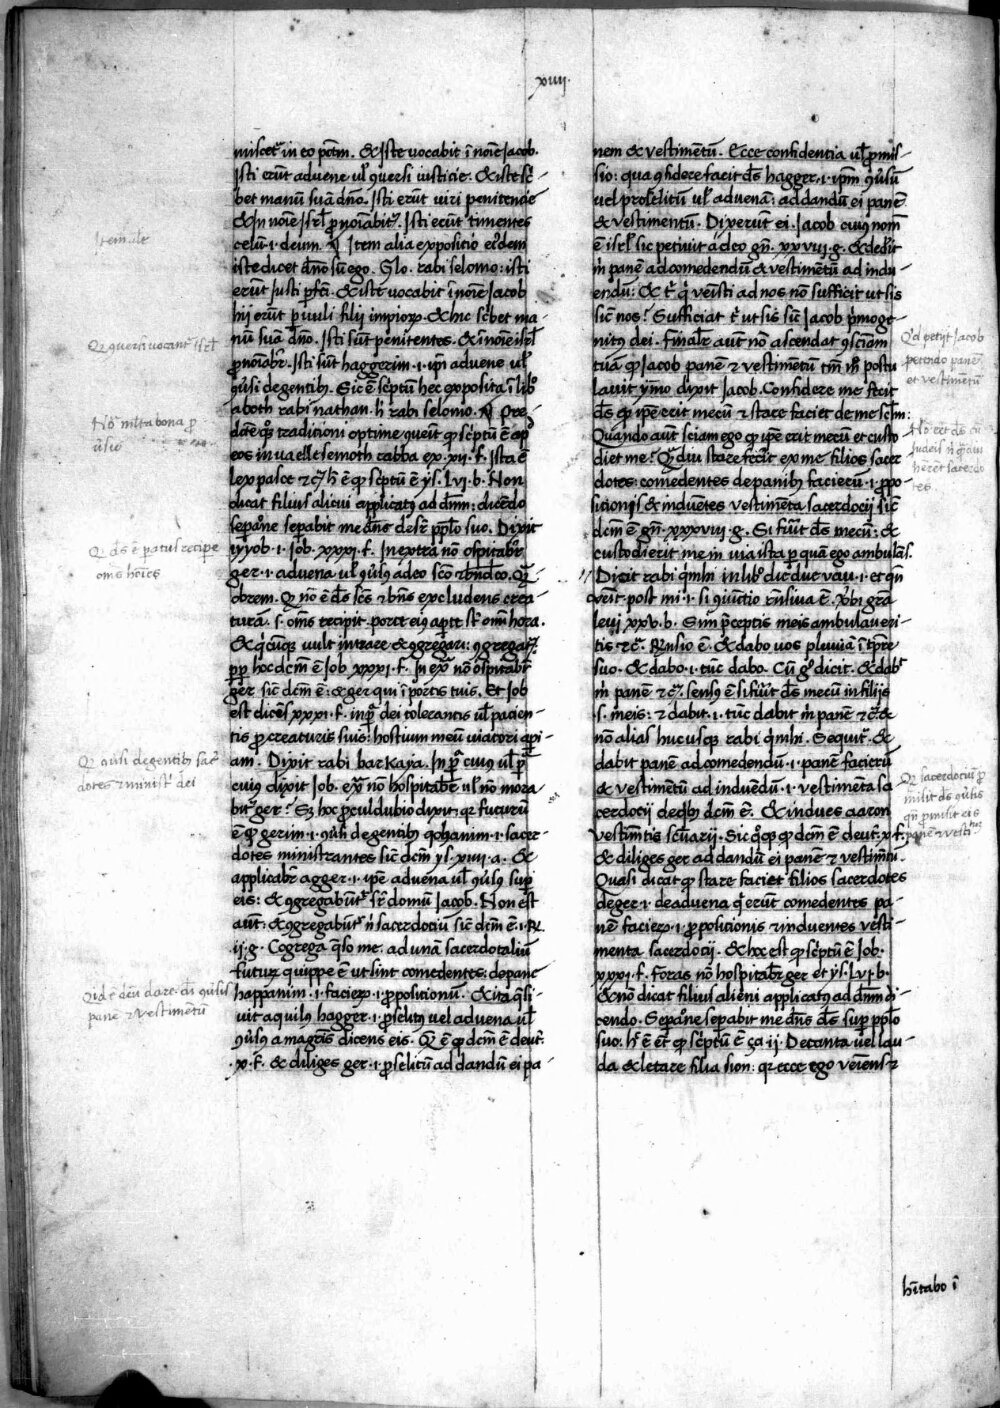 xviii.
miscet᷑ in eo pctm̄. & Iste vocabit ī noīe Jacob.
Isti erūt advene vl̕ ꝯversi iusticie. & iste sc̄i
bet manū suā dn̄o. Isti erūt viri penitencie
& In noīe isrl̕ p̱noīabit᷑. Isti erūt timentes
celū .i. deum. ¶ Item alia expositio eꝰdem
iste dicet dn̄o sū ego. Glo. rabi selomo: isti
erūt iusti p̱fc̄i. & iste vocabit ī noīe Jacob
hii erūt p̱vuli filii impioꝝ. & hic sc̄bet ma-
nū suā dn̄o. Isti sūt penitentes. & ī noīe isrl̕
p̱noīabr̕. Isti sūt haggerim .i. ip̄i advene vl̕
ꝯv̕si degentibꝫ. Sic ē sc̄ptū hec exposita ī lib̕o
aboth rabi nathan. h̄ rabi selomo. ¶ Pre-
dc̄e qͦꝫ traditioni optime ꝯvenīt qd̕ sc̄ptū ē ap̕
eos in vaelle semoth rabba ex. xii. f. Ista ē
lex pasce &c̄. h̄ ē qd̕ sc̄ptū ē ys. lvi. b. Non
dicat filius alicui applicatꝰ ad dn̄m: dicēdo
sepōne sepabit me dn̄s desr̄ pplo suo. Dixit
iyyob .i. Job. xxxi. f. In extra nō ospitabr̕
ger .i. advena vl̕ ꝯv̕sus a deo scō & bn̄dc̄o. Qr̄
obrem. Qr̄ nō ē ds̄ scs̄ & bn̄s excludens crea-
turā. s. oms̄ recipit. porte eiꝰ apte st̄ om̄i hora.
& qͥcūqꝫ vult intrare & ꝯgregari: ꝯgregat᷑
pp̄ hoc dcm̄ ē Job xxxi. f. In ex̄ nō ospitabr̕
ger sic̄ dcm̄ ē: & ger qui ī portis tuis. Et Job
est dicēs xxxi. f. inq̄ dei tolerantis vl̕ pacien-
tis p̱ creaturis suis: hostium meū viatori api-
am. Dixit rabi bar kaya. In p̄ cuiꝰ vl̕ p̄
cuiꝰ dixit Job. ex̄ nō hospitabr̄ vl̕ nō mora
bit᷑ ger? Sꝫ hoc p̱culdubio dixit, qr̄ futurū
ē qd̕ gerim .i. ꝯv̕si degentibꝫ qohanim .i. sacer-
dotes ministrantes sic̄ dcm̄ ys. xiiii. a. &
applicabr̄ agger .i. ipe advena vl̕ ꝯv̕sus sup̱
eis: & ꝯgregabūt᷑ sr̄ domū Jacob. Non est
aūt: & ꝯgregabūt᷑ n̄ sacerdociū sic̄ dcm̄ ē .i. R.
ii. g. Cogrega qͣso me. ad unā sacerdotaliū
futurꝰ quippe ē ut sint comedentes: depane
happanim .i. facieꝝ .i. p̱positionū. & ita qͣsi-
vit aquilꝰ hagger .i. p̱selitꝰ vel advena vl̕
ꝯv̕sus a magr̄is dicens eis. Qd̕ ē qd̕ dcm̄ ē deut.
x. f. & diliges ger .i. p̱selitū ad dandū ei pa
nem & vestimentū. Ecce confidentia vl̕ p̱mis-
sio: qua ꝯfidere facit ds̄ hagger .i. ipm̄ ꝯv̕sū
vel p̱selitū vl̕ advenā: ad dandū ei panē
& vestimentū. Dixerunt ei. Jacob cuiꝰ nom̄
ē isrl̕ sic petivit a deo gn̄. xxviii. g. & dederit
m̄ panē ad comedendū & vestimētū ad indu-
endū: & tͥ qͥ venisti ad nos nō sufficit ut sis
sic̄ nos? Sufficiat tͥ ut sis sic̄ Jacob p̱moge-
nitus dei. Finalr̄ aut nō ascendat ꝯsciam
tuā qd̕ Jacob panē & vestimētū tm̄ m̄ postu
lavit ymo dixit Jacob. Confidere me fecit
ds̄ qd̕ ipe erit mecū & stare faciet de me sc̄m:
Quando aūt sciam ego qd̕ ipe erit mecū et custo
diet me? Qn̄diu stare fecit ex me filios sacer
dotes: comedentes de panibꝫ facieꝝ .i. p̱po-
sitionis & induentes vestimēta sacerdocii sic̄
dcm̄ ē gn̄. xxxviii. g. Si fuit ds̄ mecū: &
custodierit me in via ista p̱ quā ego ambulās.
Dixit rabi qͥmhi in lib̕o dic̄ dur vau .i. et qn̄
vēit post mi .i. si ꝯiūctio rn̄siva ē. v̕bi grā
levi xxv. b. Si in p̱ceptis meis ambulaveri-
tis &c̄. Rn̄sio ē. & dabo vos pluviā ī tp̄re
suo. & dabo .i. tūc dabo. Cū gͦ dicit. & dab̕
m̄ panē &c̄. sensꝰ ē si fuit ds̄ mecū in filiis
s. meis: & dabit .i. tūc dabit m̄ panē &c̄ &
nō alias hucusqꝫ rabi qͥmhi. Sequit᷑. &
dabit panē ad comedendū .i. panē facierū
& vestimētū ad induēdū .i. vestimēta sa
cerdocii de qͥbꝫ dcm̄ ē. & indues aaron
vestimētis scūarii. Sic qͦꝫ qd̕ dcm̄ ē deut. x. f.
& diliges ger ad dandū ei panē & vestimētū.
Quasi dicat qd̕ stare faciet filios sacerdotes
de ger .i. de advena qͥ erūt comedentes pa-
nē facieꝝ .i. p̱posicionis & induentes vesti-
menta sacerdocii. & hoc est qd̕ sc̄ptū ē Job.
xxxi. f. Foras nō hospitabr̄ ger et ys. lvi. b.
& nō dicat filius alieni applicatꝰ ad dn̄m di
cendo. Sepōne sepabit me dn̄s ds̄ sup̱ pplo
suo. h̄ ē et̄ qd̕ sc̄ptū ē ça ii. Decanta vel lau-
da & letare filia sion: qr̄ ecce ego veiens &
Item al̕e
Qr̄ ꝯversi vocant᷑ isrl̕
No͞ ml̕ta bona p̱
ꝯv̕sio
Qr̄ ds̄ ē patus recipe
oms̄ hoīes
Qr̄ ꝯv̕si degentibꝫ sac̕
dotes & minist̕ dei
Qid ē deū dare dn̄ ꝯv̕sis
panē & vestimētū
Qd̕ petiit Jacob
petendo panē
et vestimētū
No͞ erit ds̄ cū
Judeis n̄ qͣdiu
herēt sacerdo
tes
Qr̄ sacerdociū p̱
misit ds̄ ꝯv̕sis
qn̄ p̱misit eis
panē & vesti
hītabo ī